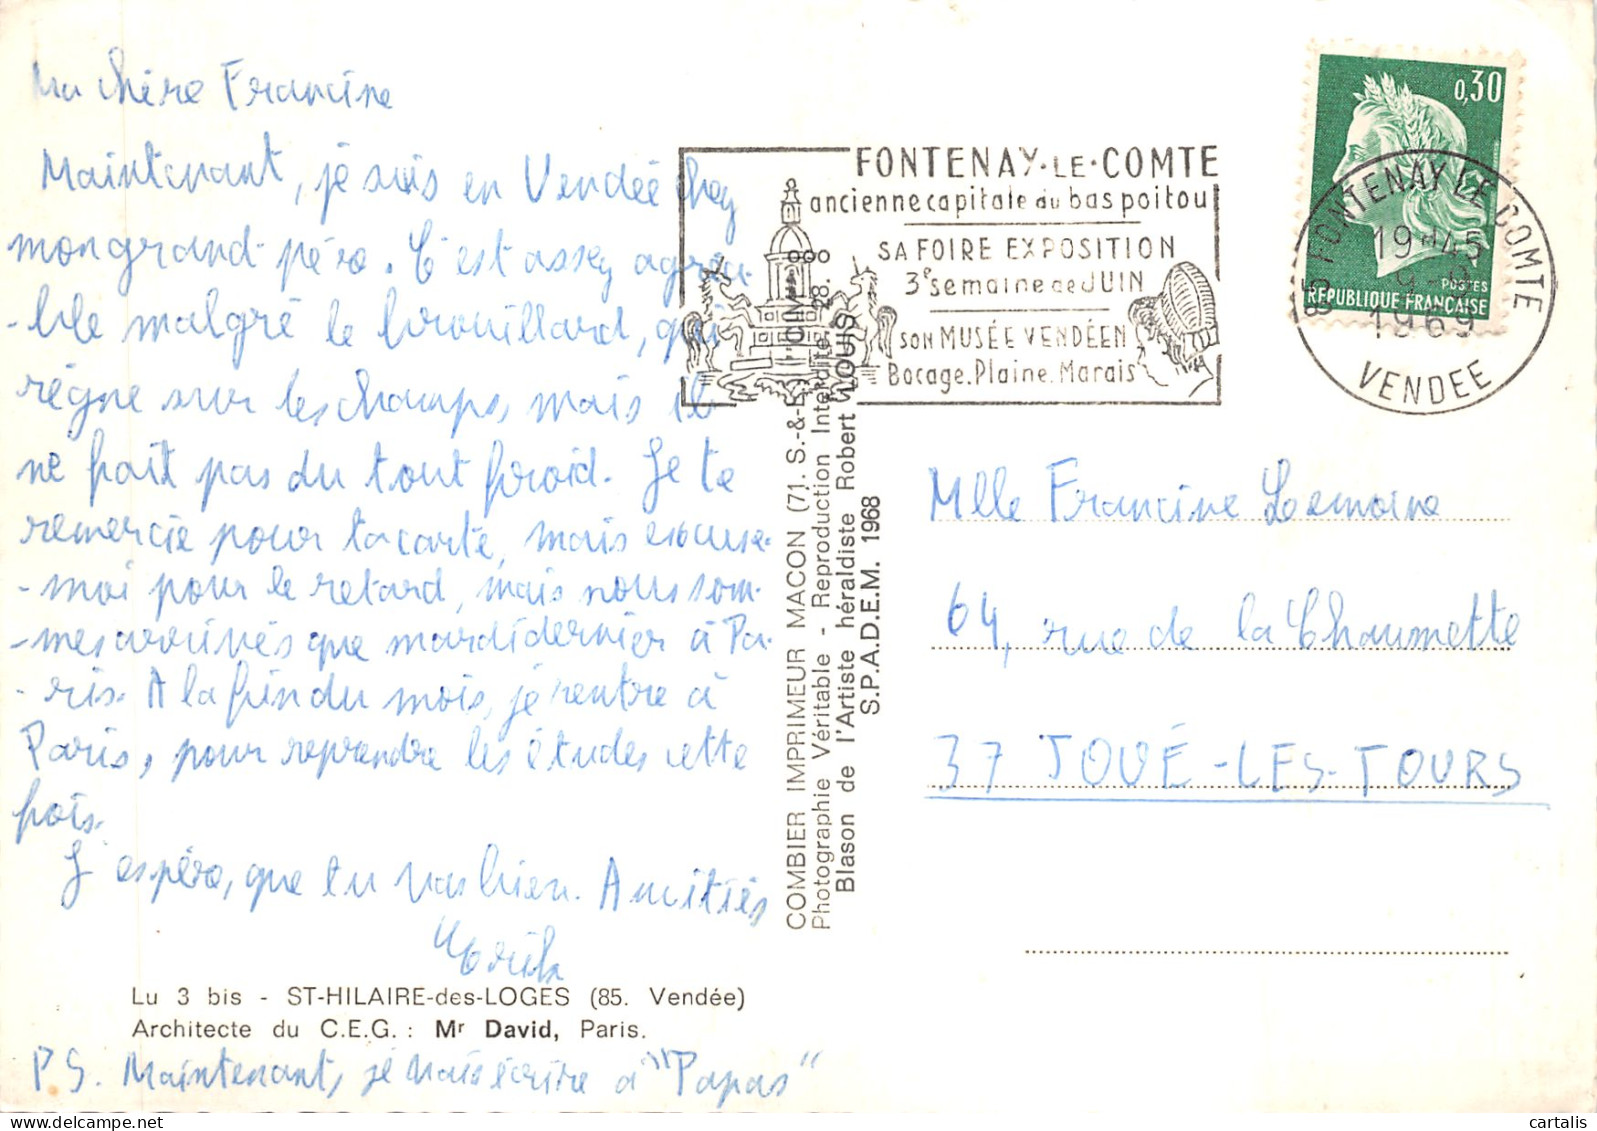 Ma chère Francine
Maintenant, je suis en Vendée chez
mon grand-père. C'est assez agréa-
-ble malgré le brouillard, qui
règne sur les champs, mais il
ne fait pas du tout froid. Je te
remercie pour ta carte, mais excuse-
-moi pour le retard, mais nous som-
-mes arrivés que mardi dernier à Pa-
-ris. A la fin du mois, je rentre à
Paris, pour reprendre les études cette
fois.
J'espère, que tu vas bien. Amitiés
Lu 3 bis - ST-HILAIRE-des-LOGES (85. Vendée)
Architecte du C.E.G. : Mr David, Paris.
PS. Maintenant, je vais écrire à "Papas"
COMBIER IMPRIMEUR MACON (71. S.-&-L.)
Photographie Véritable - Reproduction Interdite 28.
Blason de l'Artiste héraldiste Robert LOUIS
S.P.A.D.E.M. 1968
FONTENAY·LE·COMTE
ancienne capitale du bas poitou
SA FOIRE EXPOSITION
3e semaine de JUIN
SON MUSÉE VENDÉEN
Bocage. Plaine. Marais
0,30
POSTES
RÉPUBLIQUE FRANÇAISE
85 FONTENAY LE COMTE
19H45
9-9
1969
VENDEE
Mlle Francine Lemoine
64, rue de la Chaumette
37 JOUÉ-LES-TOURS
cartalis